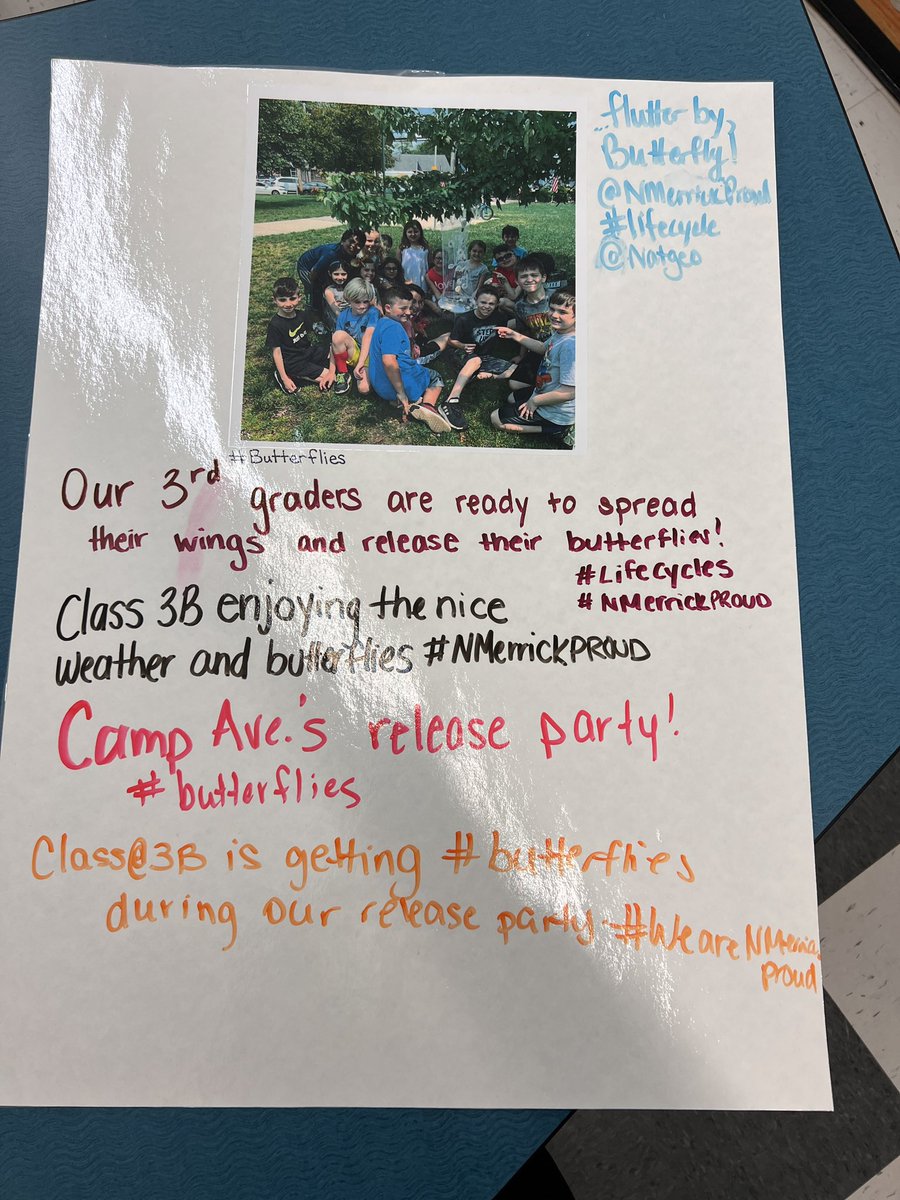 ...flutter by,
Butterfly!
@NMerrickProud
#lifecycle
@Natgeo
#Butterflies
Our 3rd graders are ready to spread
their wings and release their butterflies!
#LifeCycles
#NMerrickPROUD
Class 3B enjoying the nice
weather and butterflies #NMerrickPROUD
Camp Ave.'s release party!
#butterflies
Class@3B is getting #butterflies
during our release party #WeareNMerrick
Proud